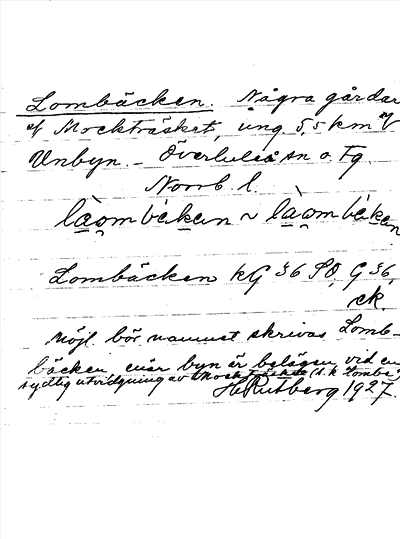 Lombäcken. Några gårdar
af Mockträsket, ung. 5,5 km af V
Unbyn. – Överluleå sn o. Tg.
Norrb. l.
Lombäcken kG 36 SO, G 36,
ck.
Möjl. bör namnet skrivas Lomb-
bäcken, enär byn är belägen vid en
sydlig utvidgning av Mockträsket (s.k.
H. Rutberg 1927.